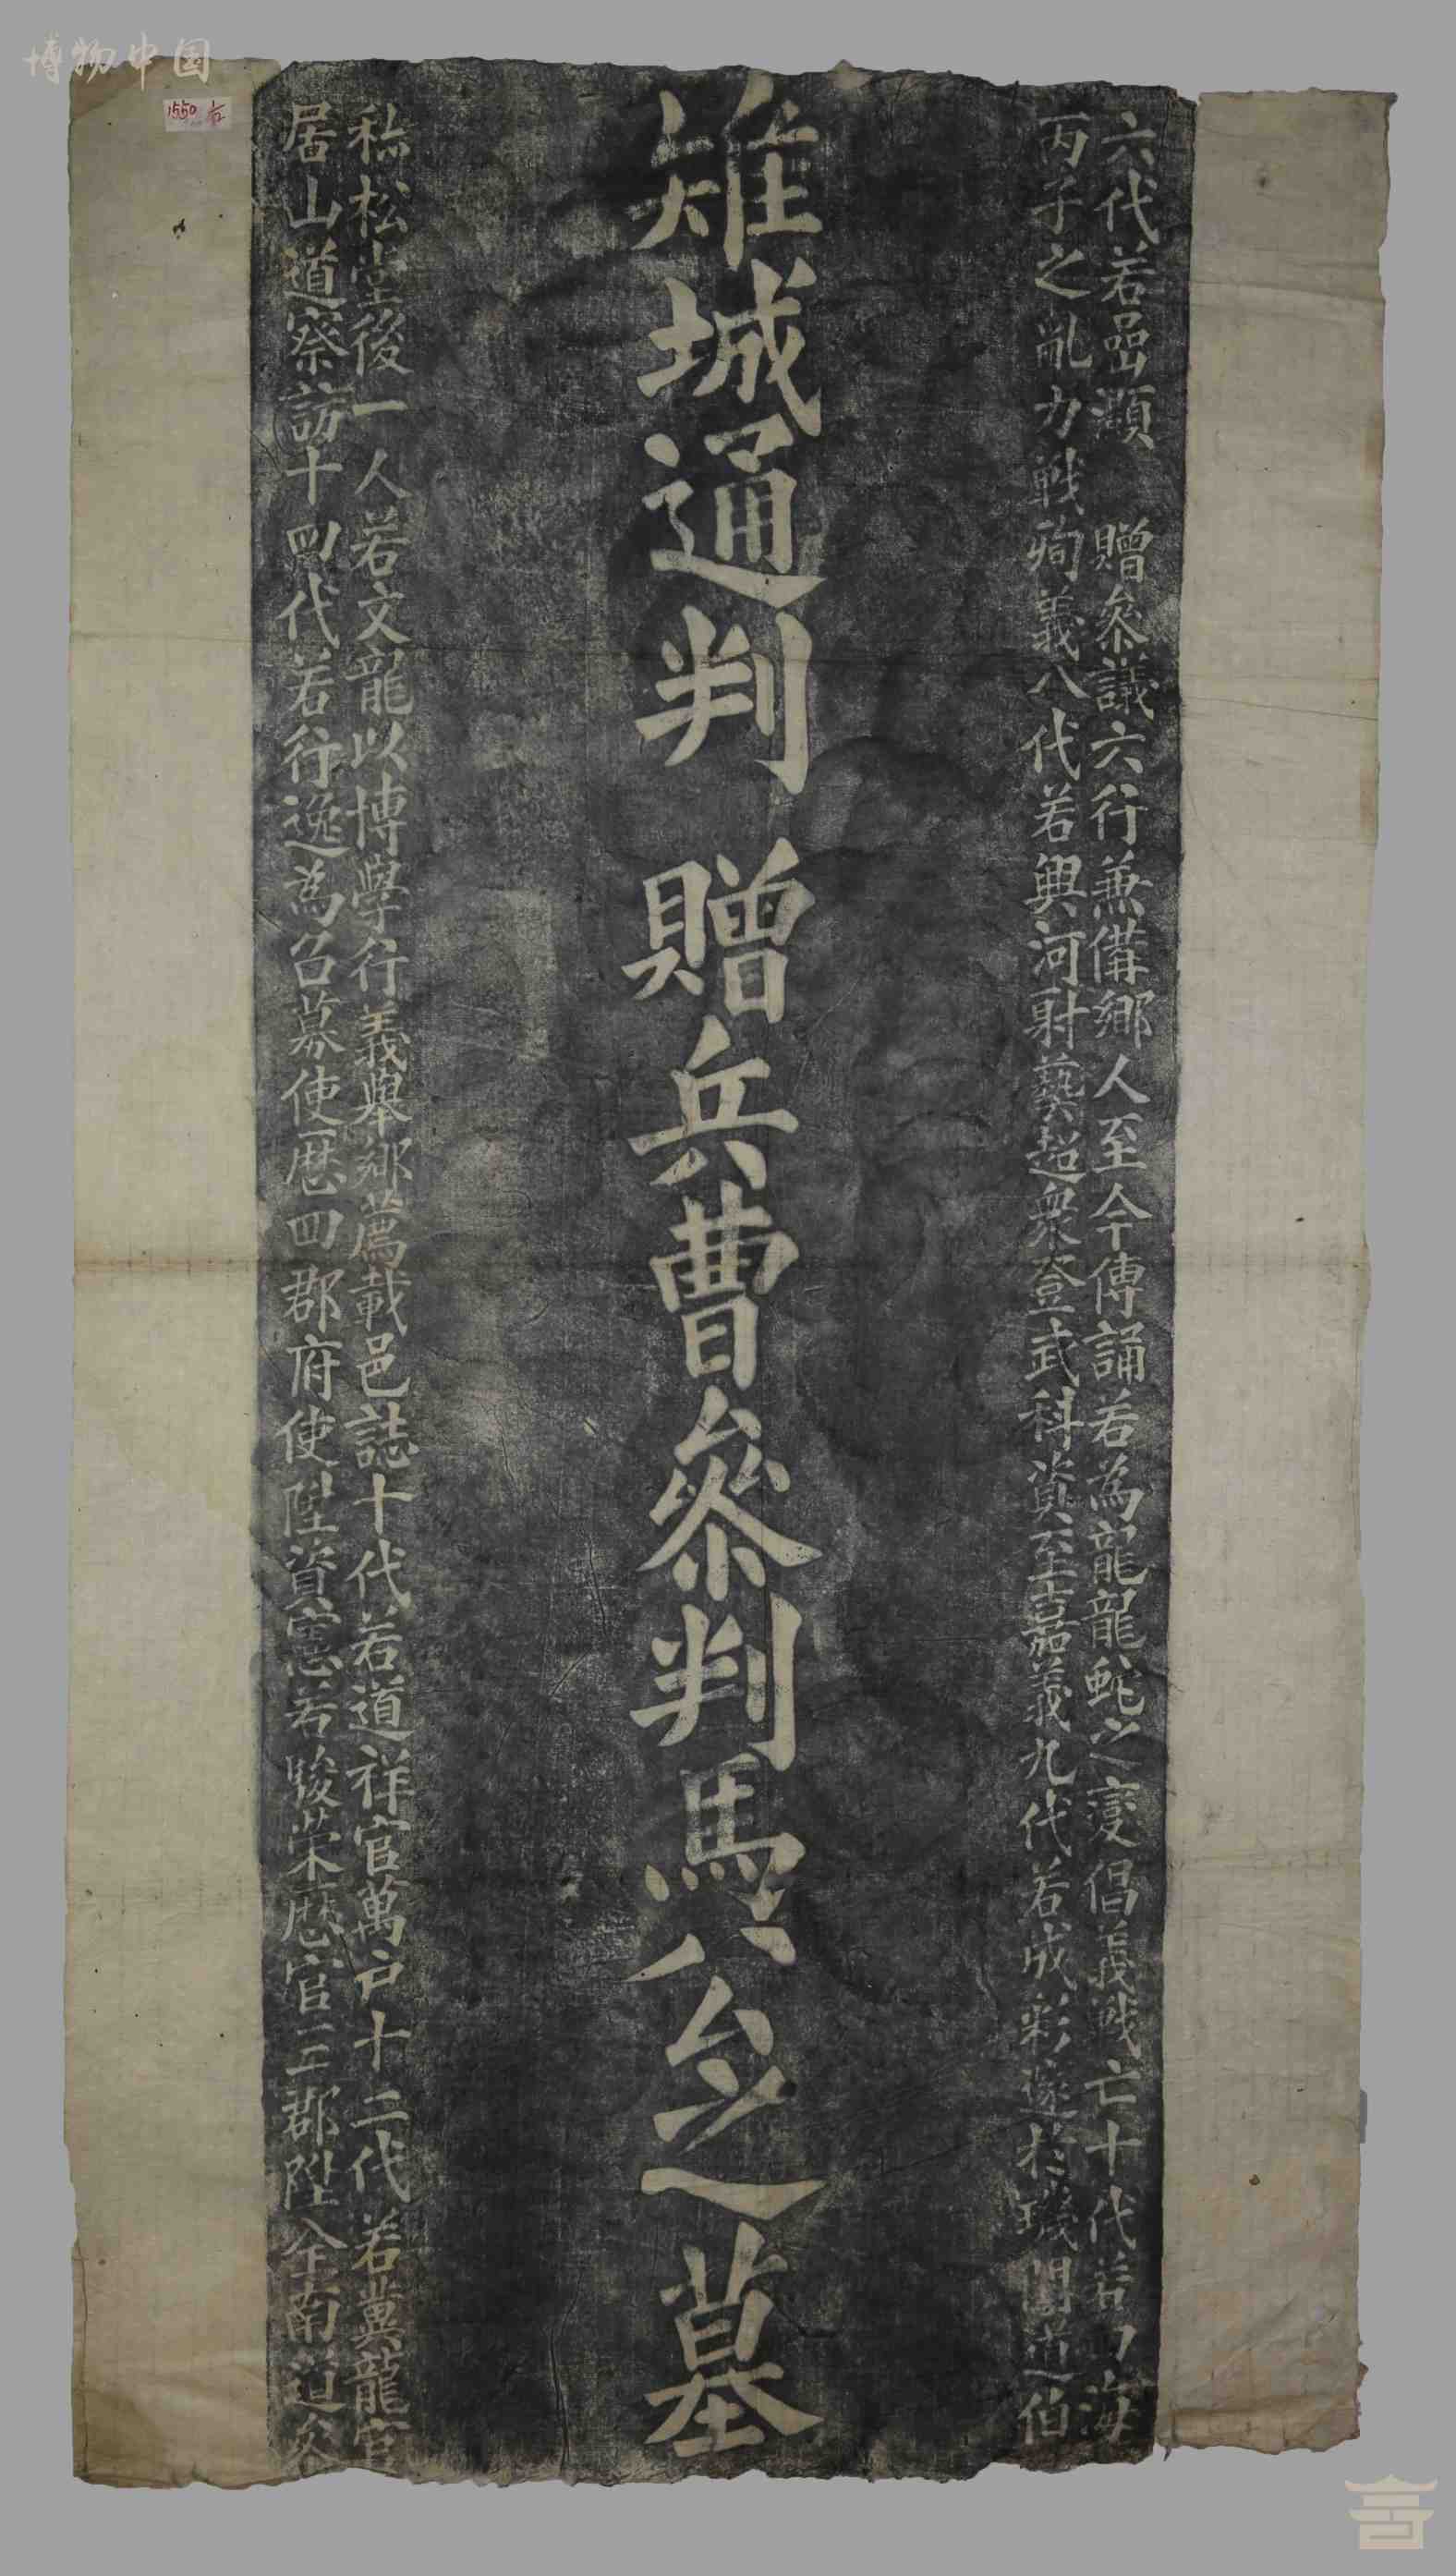 博物中国
1550
六代若嵒灝 贈叅議六行兼備鄉人至今傳誦若為龍龍蛇之變倡義戰亡十代若 海
丙子之亂力戰殉義八代若興河射藝超衆登武科資至嘉義九代若成彩遂於璣 道伯
雉城通判 贈兵曹叅判馬公之墓
松堂後一人若文龍以博學行義擧鄉薦載邑誌十代若道祥官萬戶十二代若冀龍官
居山道察訪十四代若行逸為召募使歷四郡府使陞資憲若駿榮歷官三郡陞全南道叅